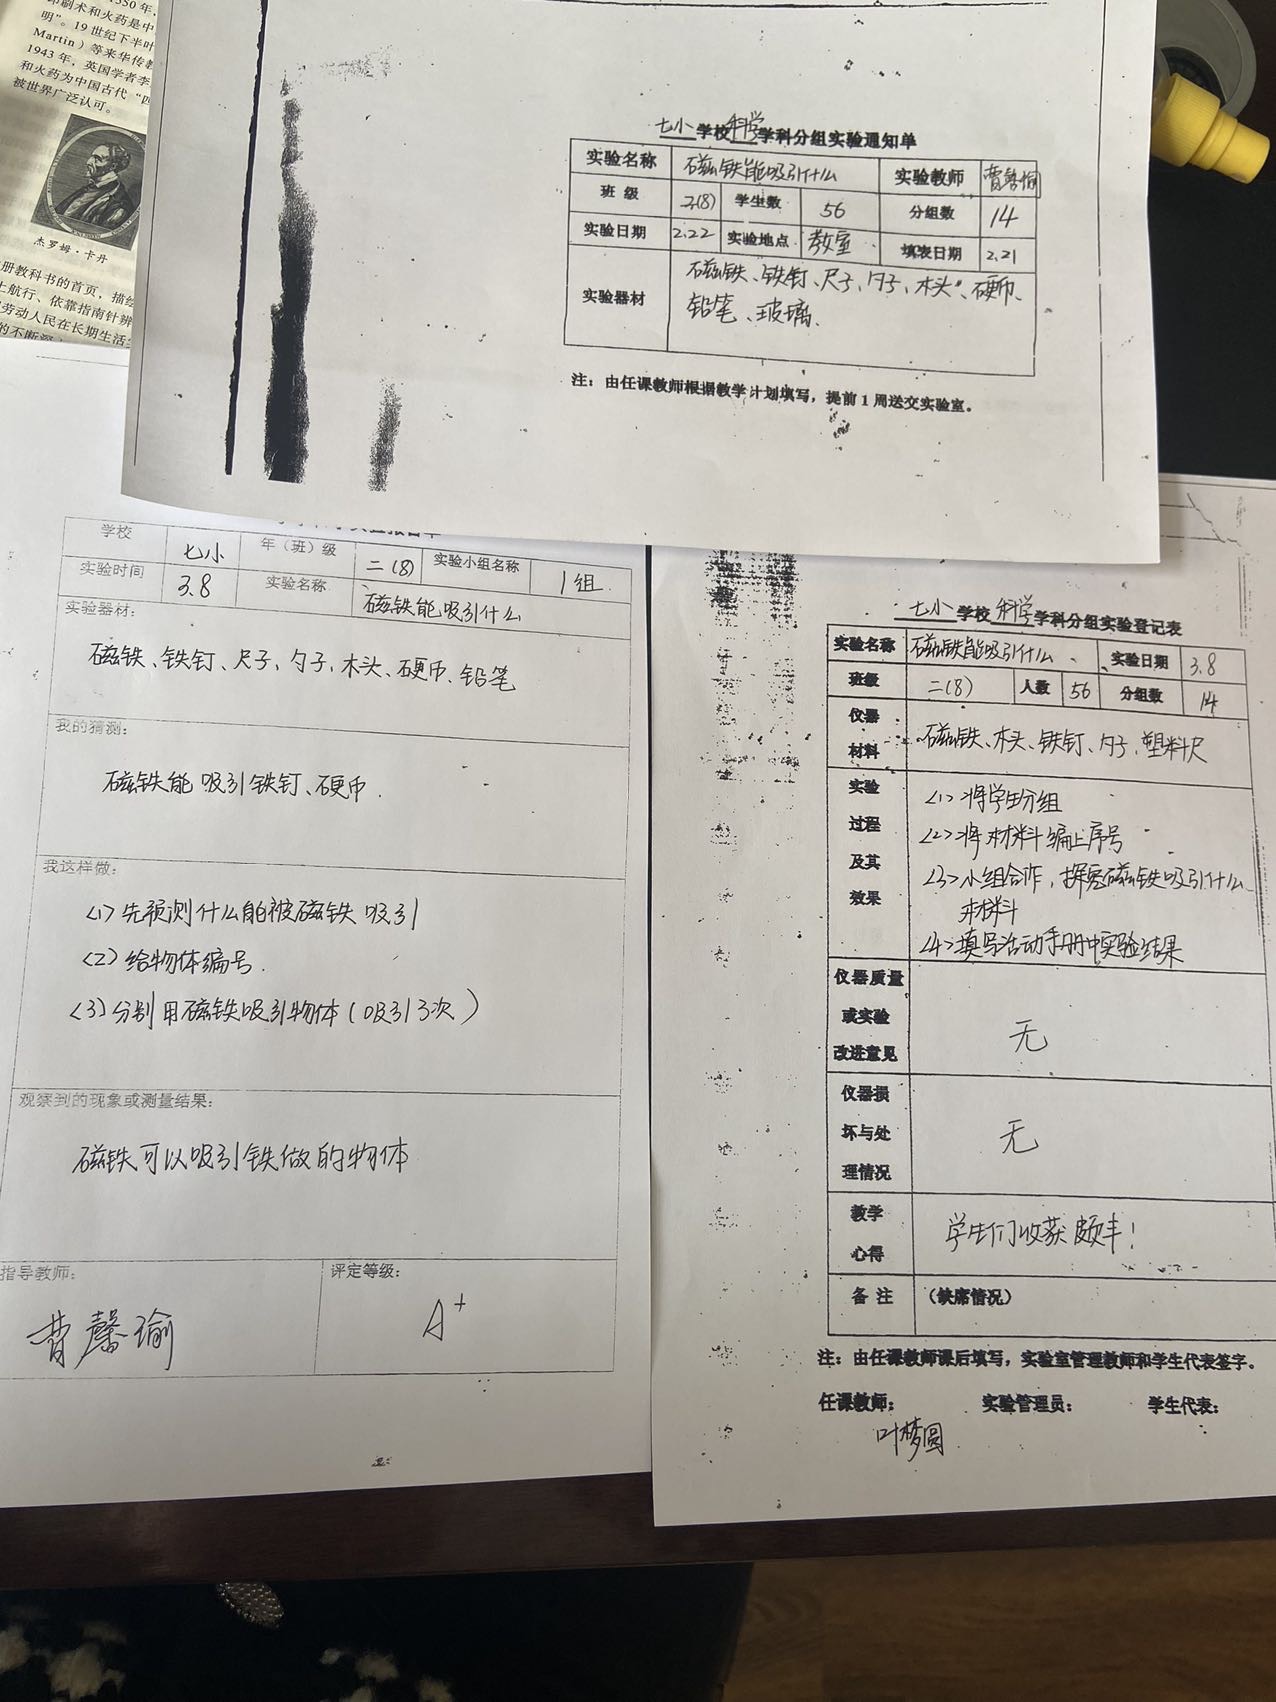 1550年,
印刷术和火药是中
明”。19世纪下半叶
Martin）等来华传教
1943年，英国学者李
和火药为中国古代“四
被世界广泛认可。
杰罗姆·卡丹
册教科书的首页，描绘
上航行、依靠指南针辨
劳动人民在长期生活
的不断深
七小学校科学学科分组实验通知单
实验名称 磁铁能吸引什么 实验教师 曹馨瑜
班 级 二(8) 学生数 56 分组数 14
实验日期 2.22 实验地点 教室 填表日期 2.21
实验器材 磁铁、铁钉、尺子、勺子、木头、硬币、
铅笔、玻璃、
注：由任课教师根据教学计划填写，提前1周送交实验室。
学校 七小 年（班）级 二(8) 实验小组名称 1组
实验时间 3.8 实验名称 磁铁能吸引什么
实验器材：
磁铁、铁钉、尺子、勺子、木头、硬币、铅笔
我的猜测：
磁铁能吸引铁钉、硬币.
我这样做：
<1>先预测什么能被磁铁吸引
<2>给物体编号.
<3>分别用磁铁吸引物体(吸引3次)
观察到的现象或测量结果：
磁铁可以吸引铁做的物体
指导教师： 评定等级：
曹馨瑜 A+
七小学校科学学科分组实验登记表
实验名称 磁铁能吸引什么 实验日期 3.8
班级 二(8) 人数 56 分组数 14
仪器
材料 磁铁、木头、铁钉、勺子、塑料尺
实验
过程
及其
效果
<1>将学生分组
<2>将材料编上序号
<3>小组合作，探究磁铁吸引什么
材料
<4>填写活动手册中实验结果
仪器质量
或实验
改进意见 无
仪器损
坏与处
理情况 无
教学
心得 学生们收获颇丰！
备 注 （缺席情况）
注：由任课教师课后填写，实验室管理教师和学生代表签字。
任课教师： 实验管理员： 学生代表：
叶梦圆